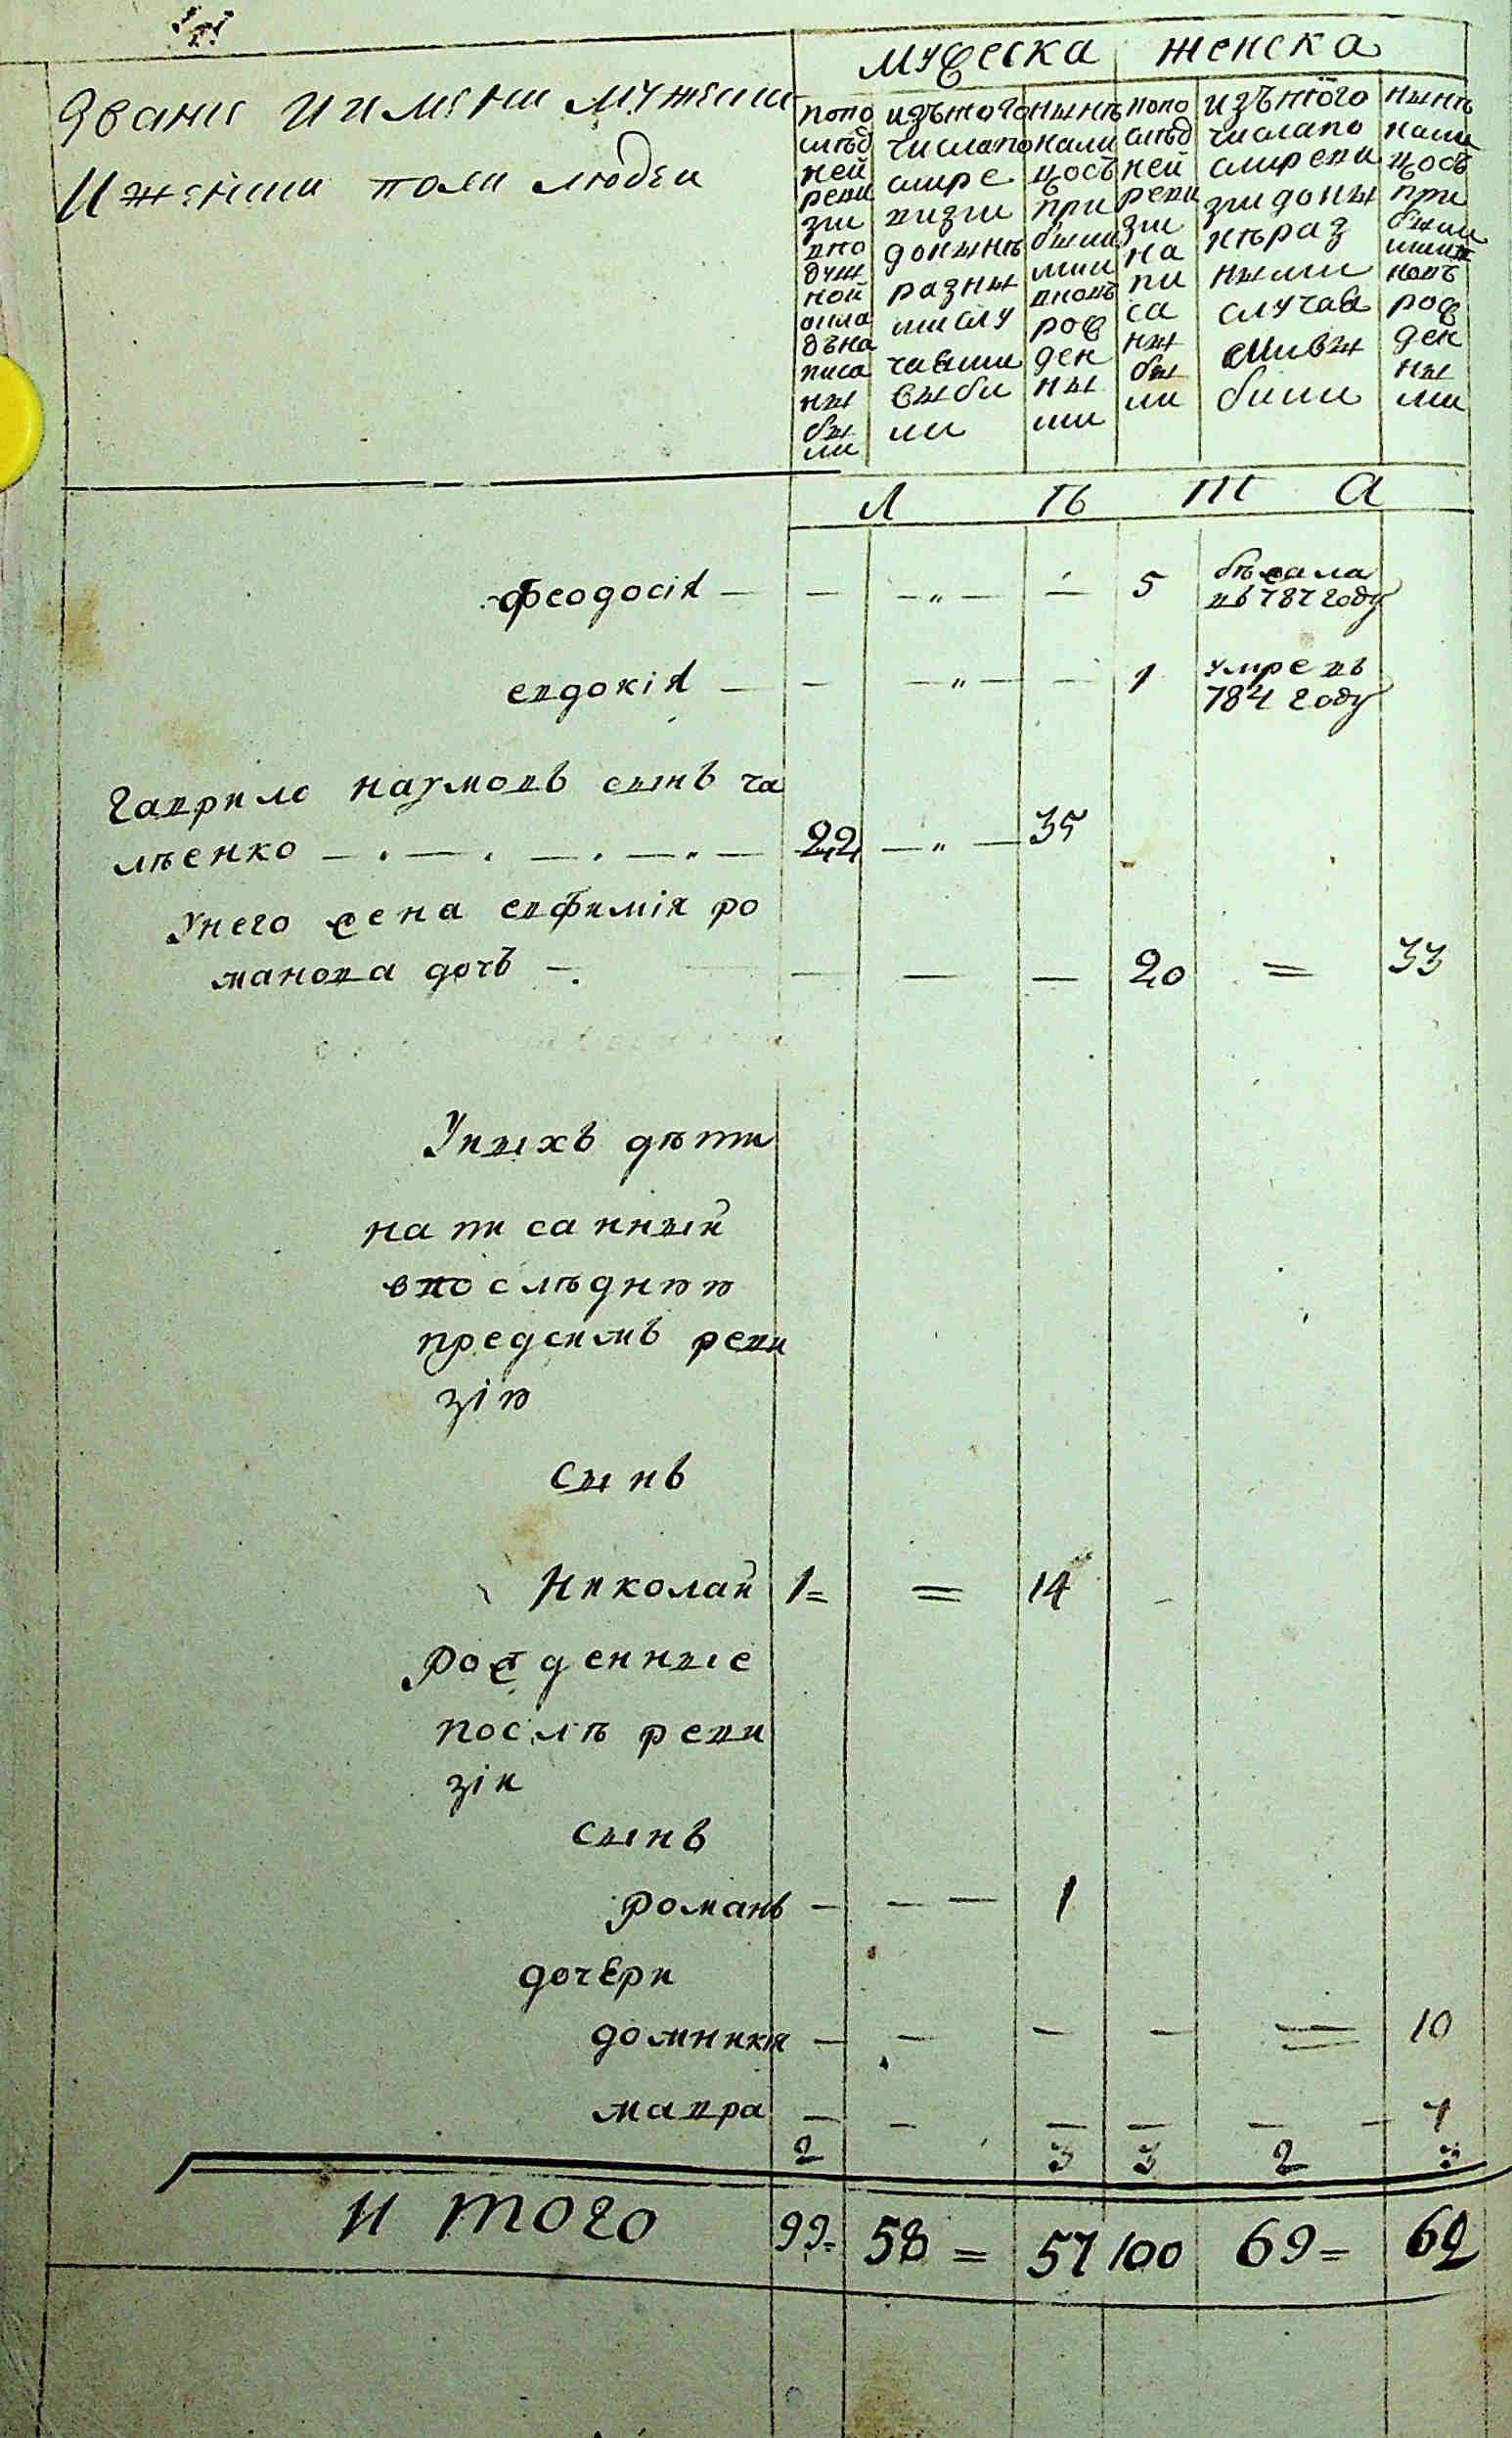 Звание и имяни мужеска
И женска пола людей
мужеска женска
попо слѣд ней реви зии впо душ ной окла дъ на писа ны бы ли
изъ того числа по слире визи до нынѣ разны ми слу чаями выбы ли
нынѣ нали цосъ при были ми и вновъ рож ден ны ми
попо слѣд ней реви зии на пи са ны бы ли
изъ того числа по слиреви зии до ны нѣ раз ными случая ми вы были
нынѣ нали цосъ при были ми и в новъ рож ден ны ми
Л ѣ т а
феодосія — — — „ — — 5 бѣжала в 787 году
евдокія — — — „ — — 1 умре въ 784 году
Гаврило наумовъ сынъ ча
лѣенко — . — . — . — „ — 22 — „ — 35
Унего жена евфимія ро
манова дочь — . — — — 20 = 33
Уныхъ дѣти
написанныи
в послѣднѣѣ
предсимъ реви
зіѣ
Сынъ
Николай 1 = = 14 -
Рожденные
послѣ реви
зіи
сынъ
романъ — — — 1
дочери
домникія — — — — = 10
мавра — — — — — - 7
2 3 3 2 3
И того 99 = 58 = 57 100 69 = 62